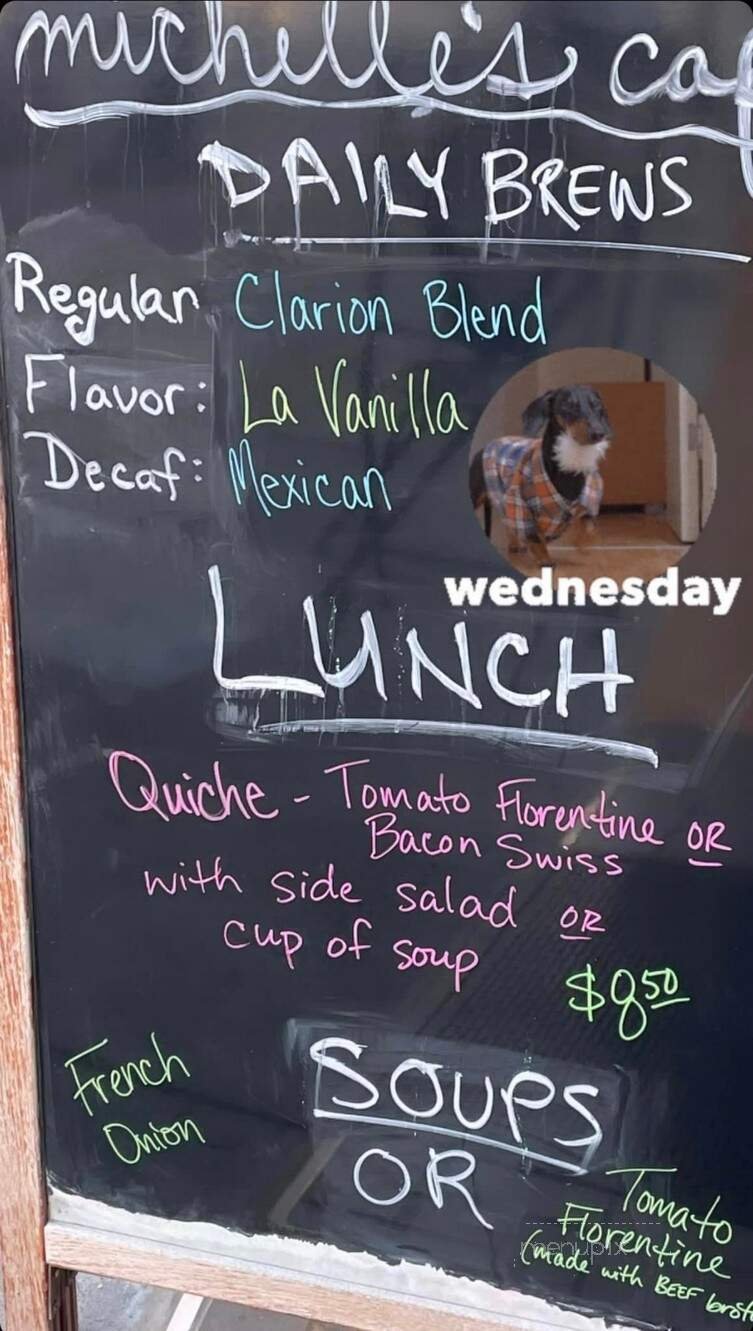 michelle's caf
DAILY BREWS
Regular Clarion Blend
Flavor: La Vanilla
Decaf: Mexican
wednesday
LUNCH
Quiche - Tomato Florentine OR
Bacon Swiss
with side salad OR
cup of soup
$8.50
French
Onion
SOUPS
OR
Tomato
Florentine
(made with BEEF brot
menupix